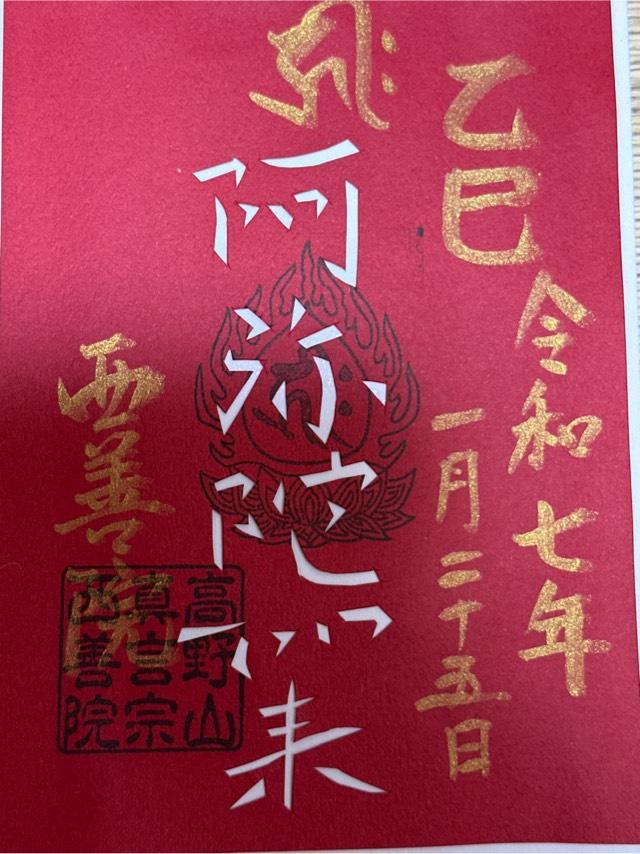 乙巳
令和七年
一月二十五日
阿弥陀如来
西善院
高野山
真言宗
西善院